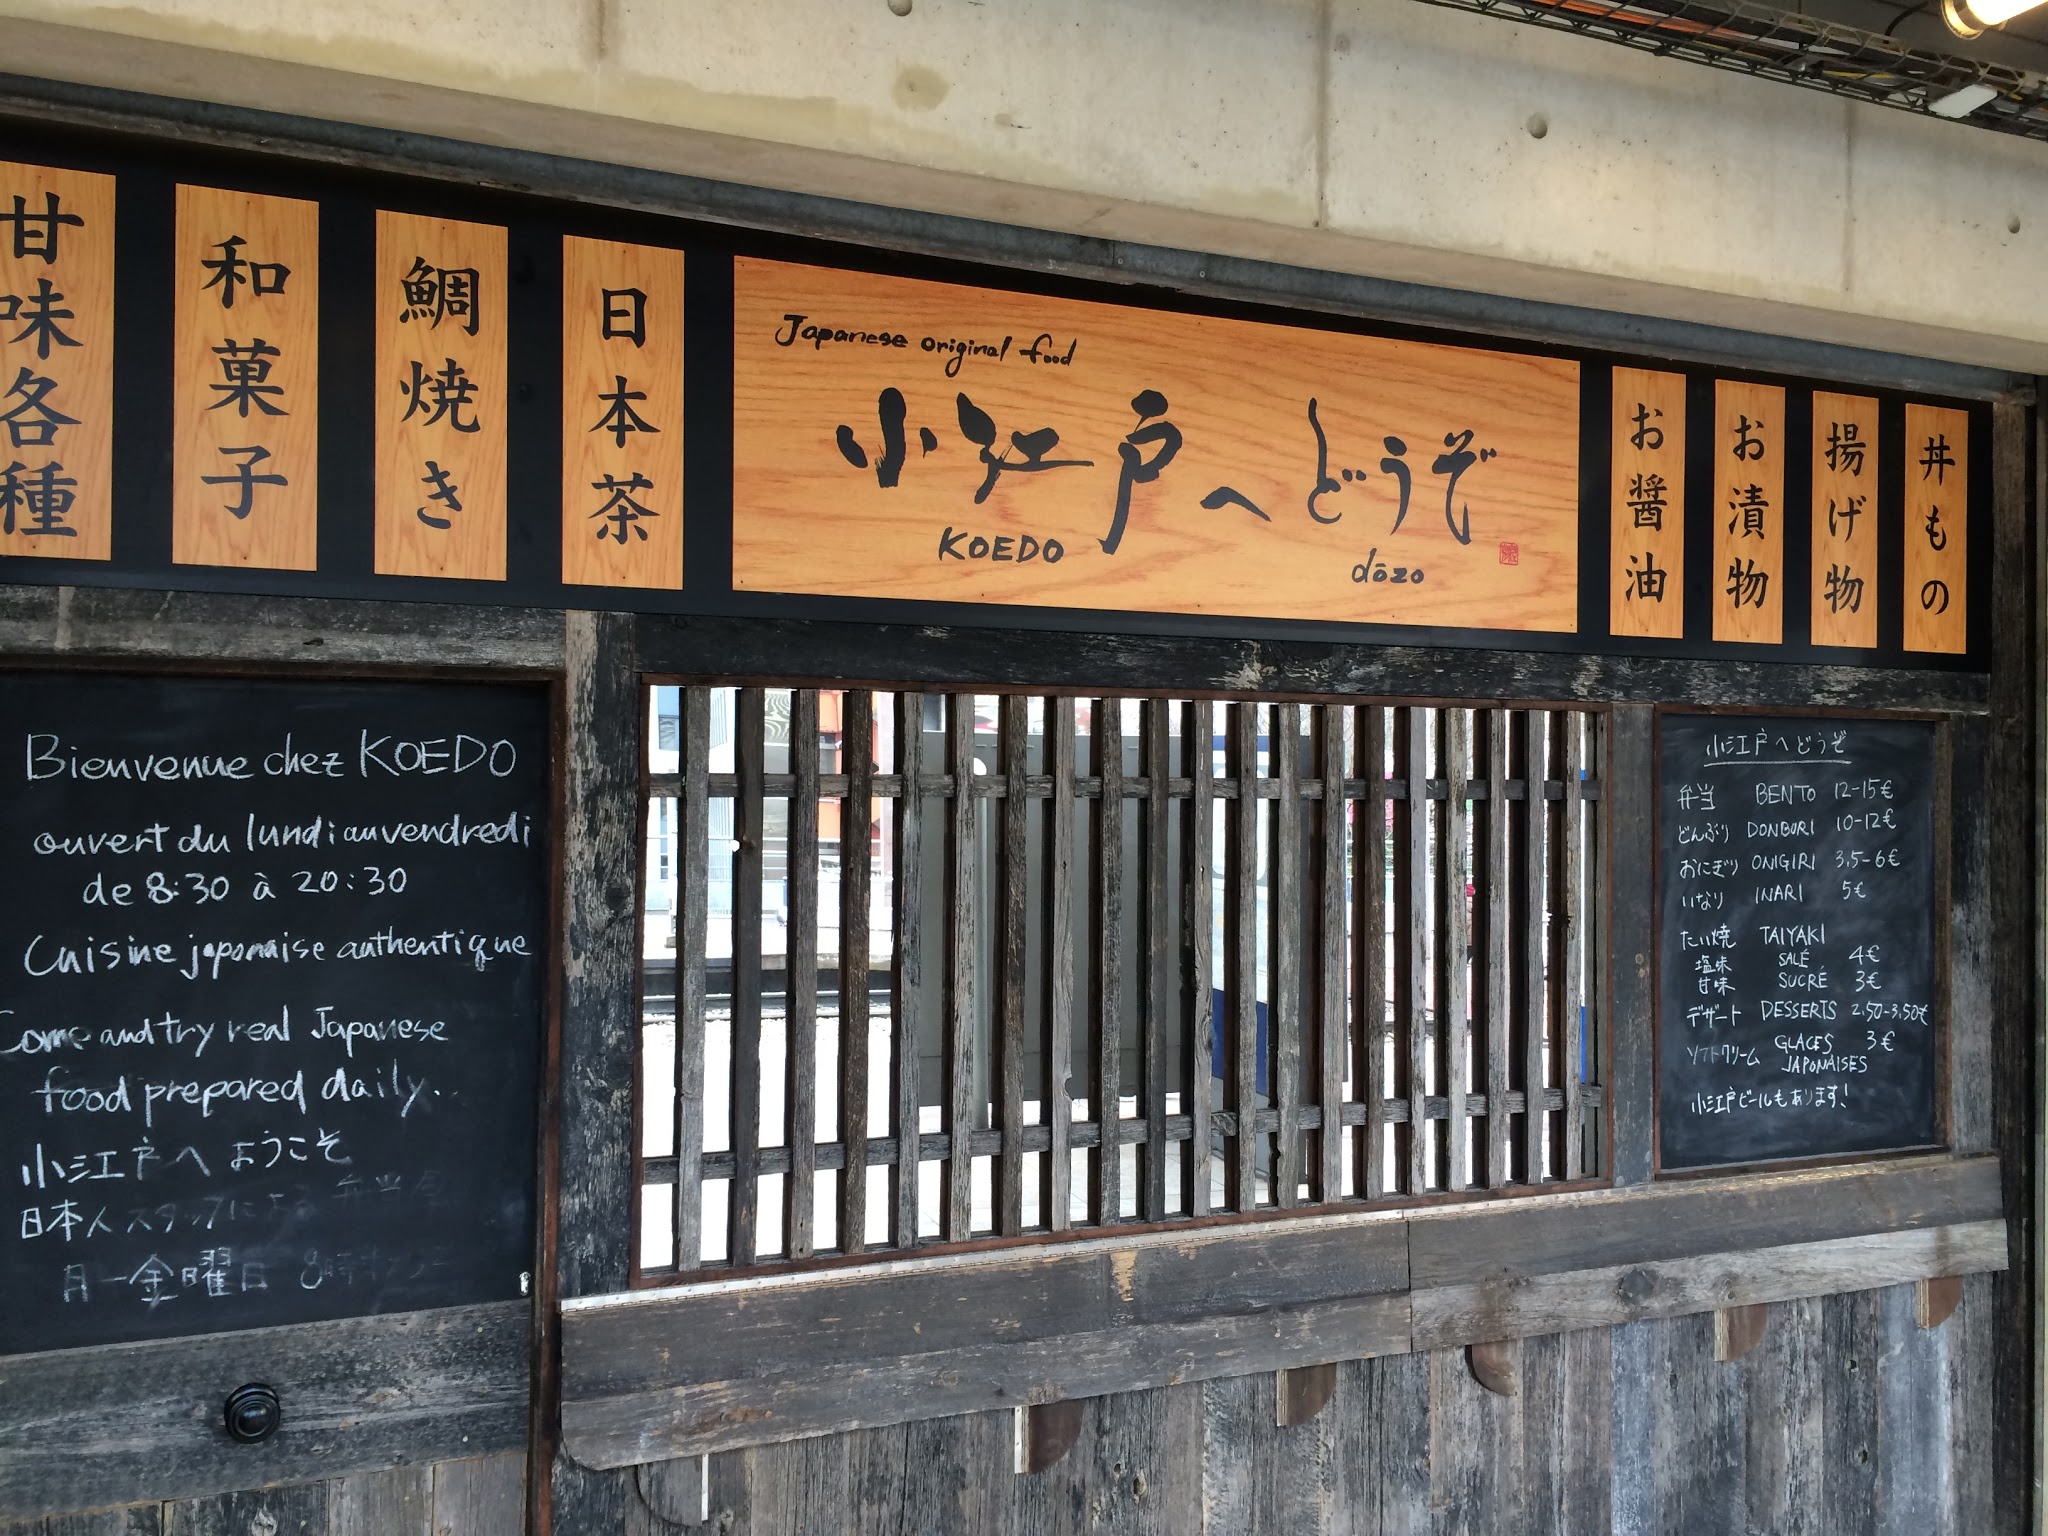 甘味各種
和菓子
鯛焼き
日本茶
Japanese original food
小江戸へどうぞ
KOEDO
dōzo
お醤油
お漬物
揚げ物
丼もの
Bienvenue chez KOEDO
ouvert du lundi au vendredi
de 8:30 à 20:30
Cuisine japonaise authentique
Come and try real Japanese
food prepared daily..
小江戸へようこそ
日本人スタッフによる弁当
月ー金曜日 8時半
小江戸へどうぞ
弁当 BENTO 12-15€
どんぶり DONBURI 10-12€
おにぎり ONIGIRI 3,5-6€
いなり INARI 5€
たい焼 TAIYAKI
塩味 SALÉ 4€
甘味 SUCRÉ 3€
デザート DESSERTS 2,50-3,50€
ソフトクリーム GLACES 3€
JAPONAISES
小江戸ビールもあります!